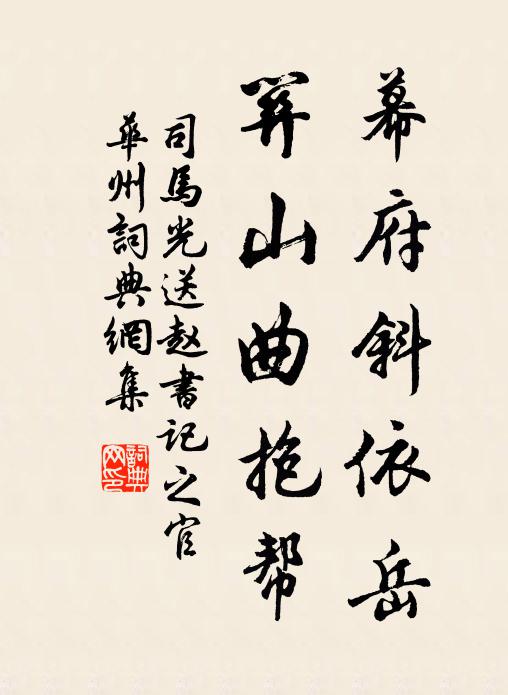 幕府斜依岳
關山曲抱帮
司馬光送赵書記之官
華州詞典網集
詞典
网印